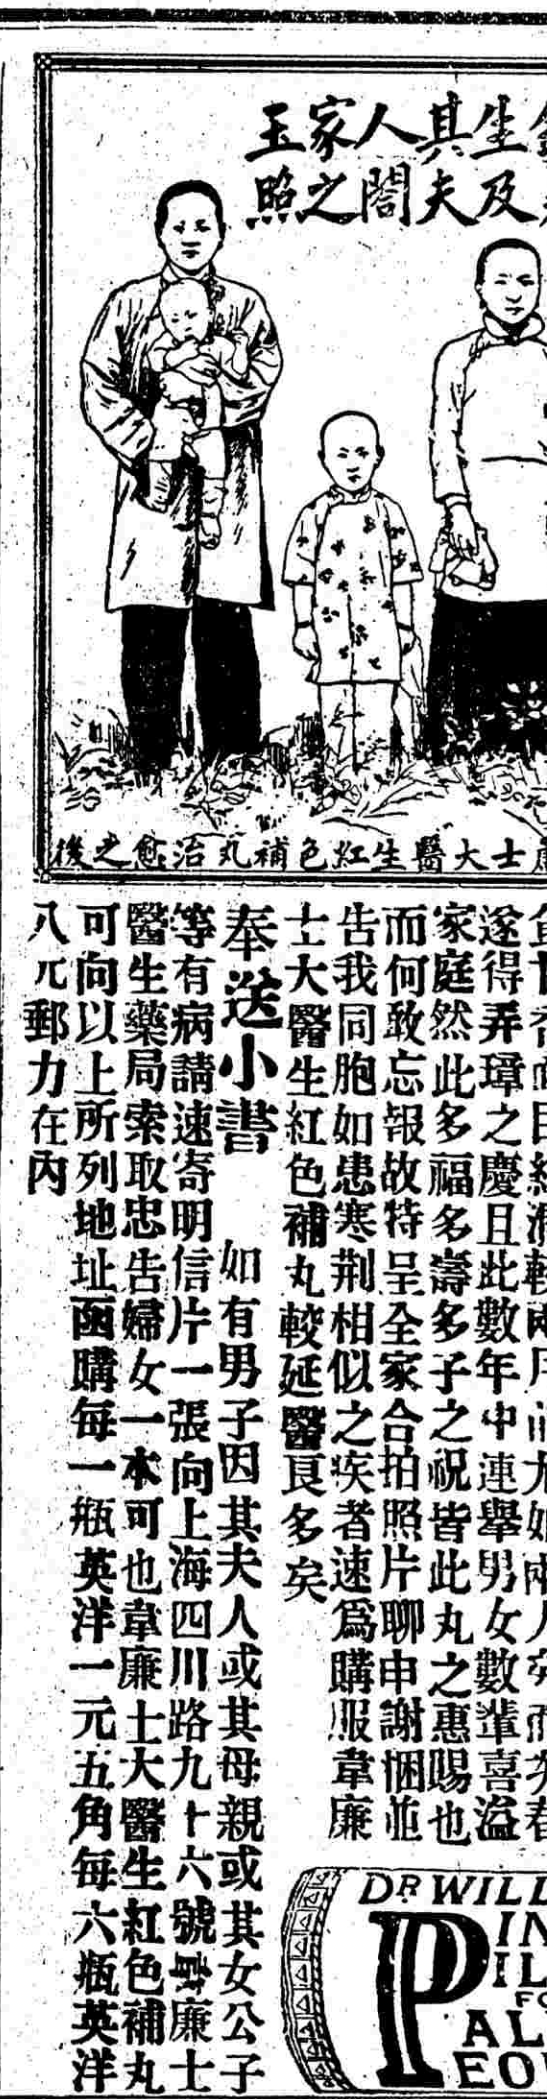 生及其夫人閤家之玉照
士大醫生紅色補丸治愈之後
遂得弄璋之慶且此數年中連舉男女數輩喜溢
家庭然此多福多壽多子之祝皆此丸之惠賜也
而何敢忘報故特呈全家合拍照片聊申謝悃並
告我同胞如患寒荆相似之疾者速爲購服韋廉
士大醫生紅色補丸較延醫良多矣
奉送小書 如有男子因其夫人或其母親或其女公子
等有病請速寄明信片一張向上海四川路九十六號韋廉士
醫生藥局索取忠告婦女一本可也韋廉士大醫生紅色補丸
可向以上所列地址函購每一瓶英洋一元五角每六瓶英洋
八元郵力在內
DR WILL
PIN
PIL
FO
PAL
PEO